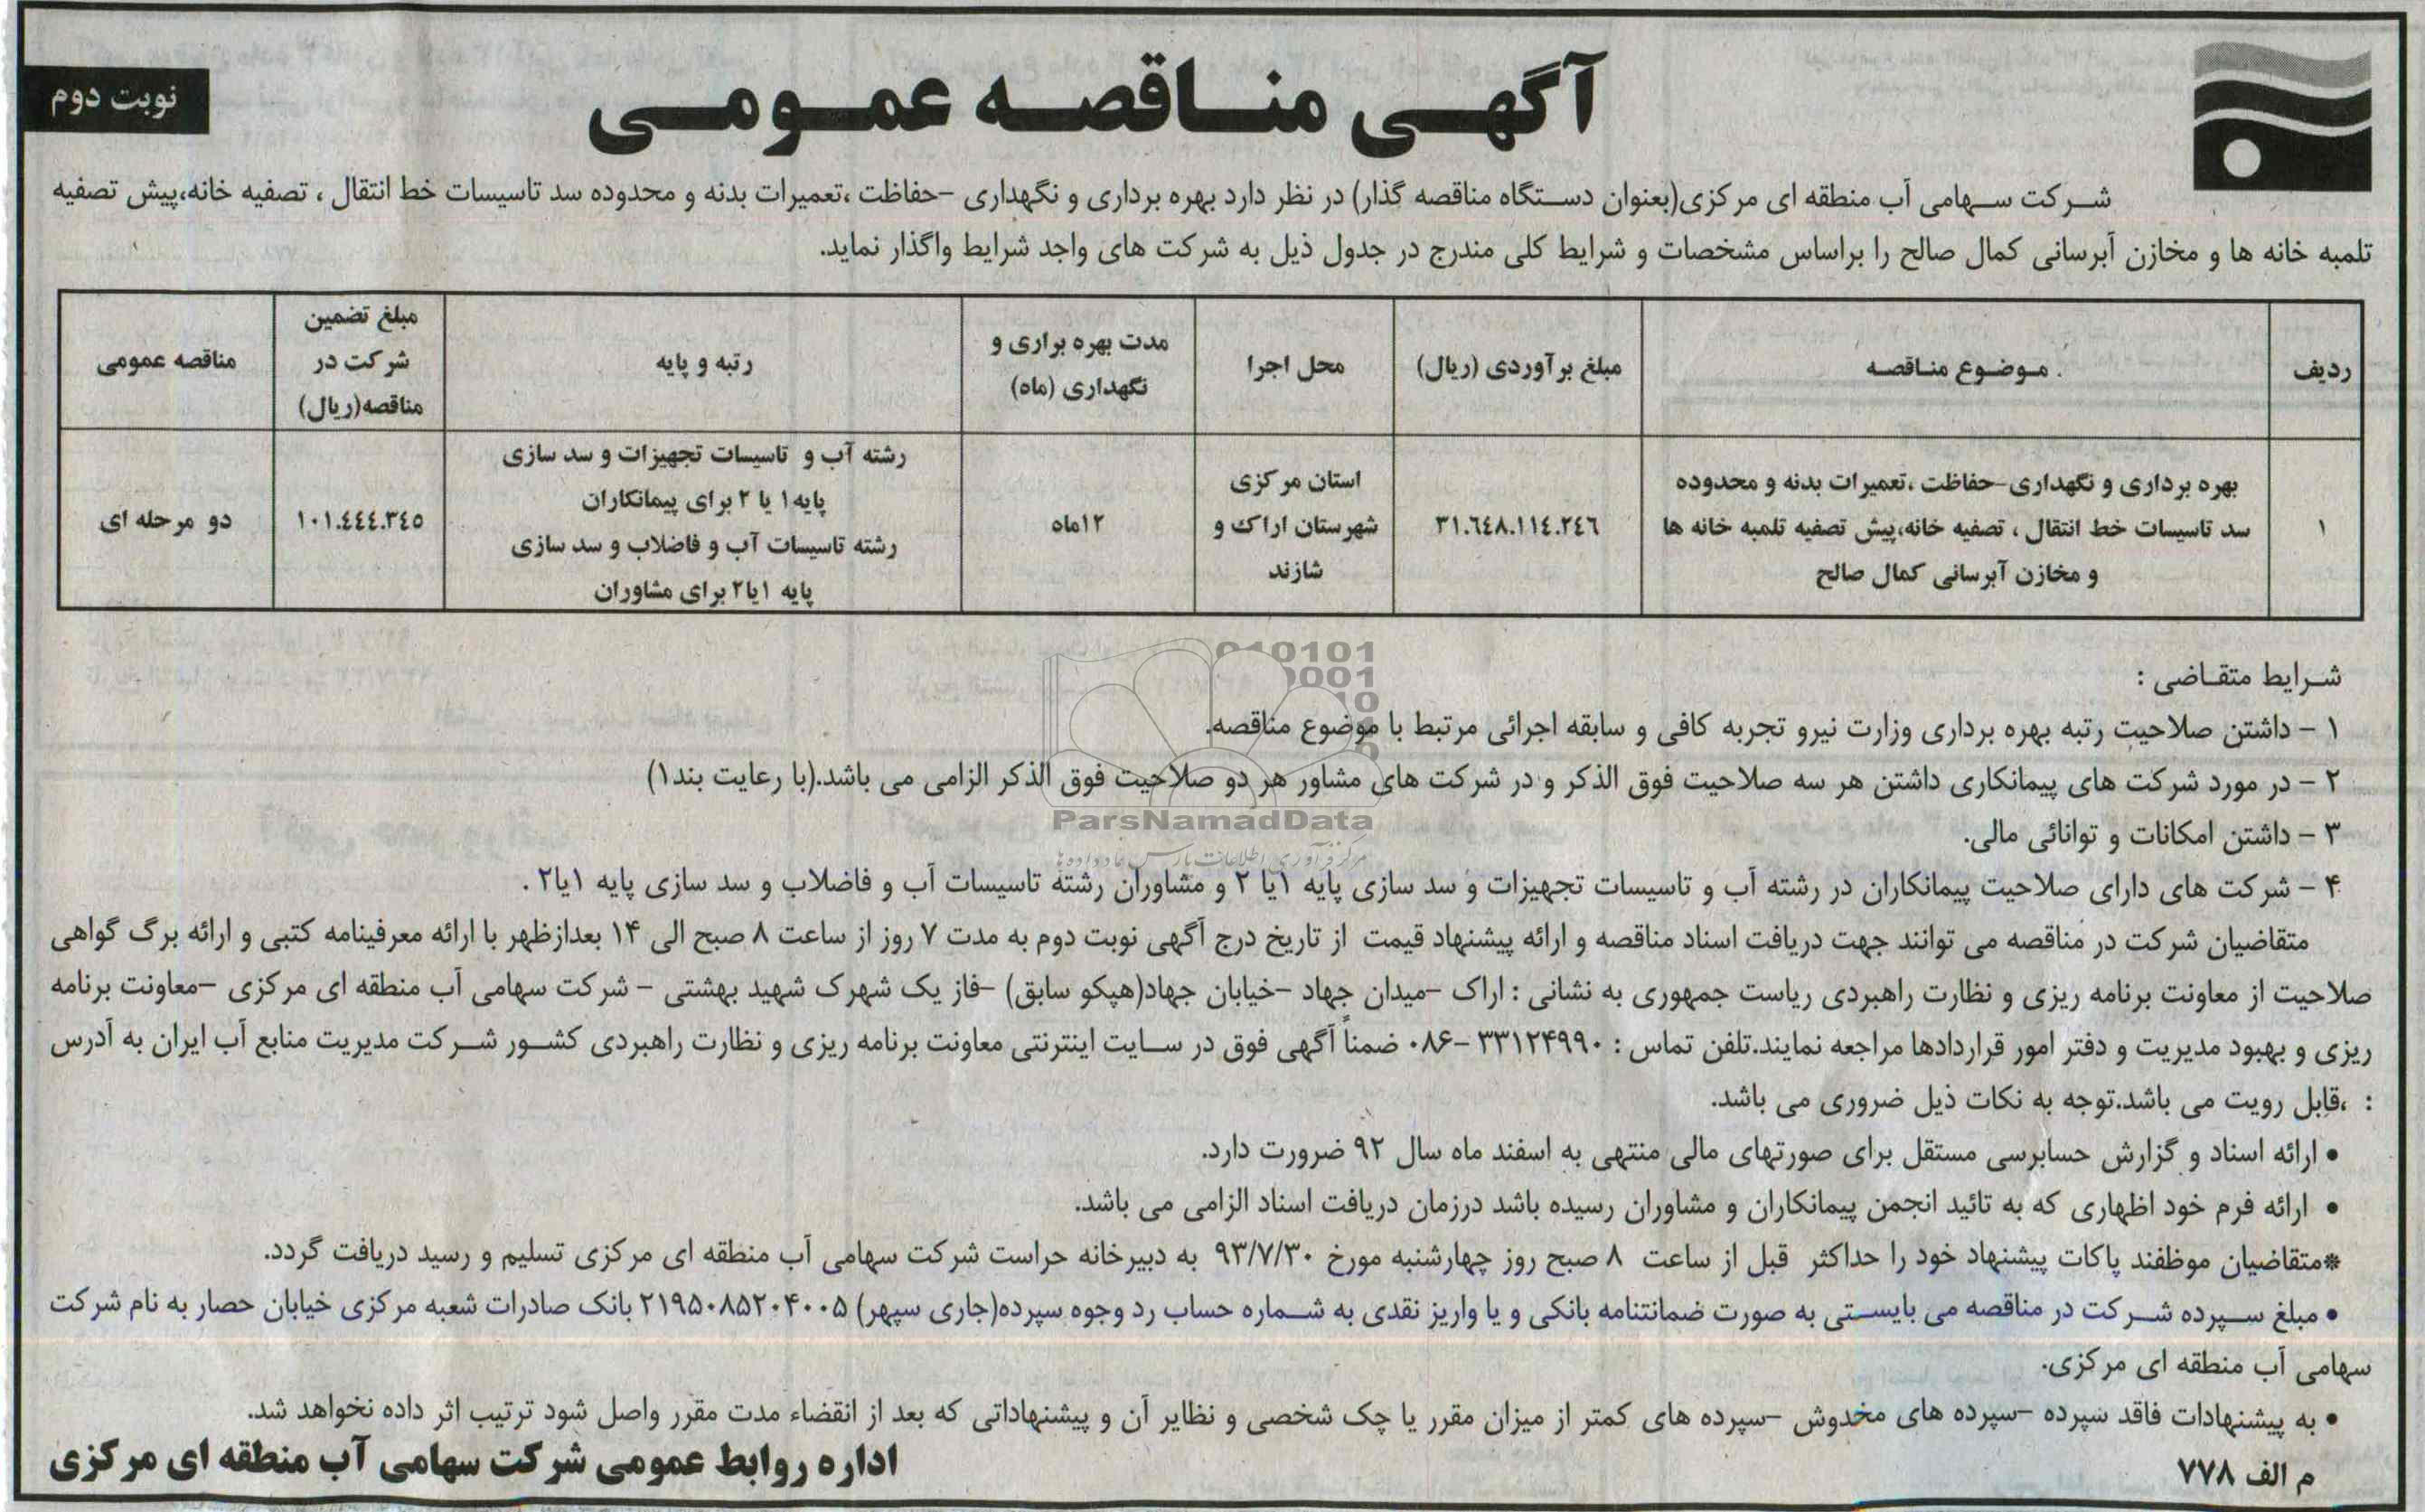 آگهی مناقصه عمومی
نوبت دوم
شرکت سهامی آب منطقه ای مرکزی(بعنوان دستگاه مناقصه گذار) در نظر دارد بهره برداری و نگهداری -حفاظت ،تعمیرات بدنه و محدوده سد تاسیسات خط انتقال ، تصفیه خانه،پیش تصفیه
تلمبه خانه ها و مخازن آبرسانی کمال صالح را براساس مشخصات و شرایط کلی مندرج در جدول ذیل به شرکت های واجد شرایط واگذار نماید.
ردیف
موضوع مناقصه
مبلغ برآوردی (ریال)
محل اجرا
مدت بهره براری و
نگهداری (ماه)
رتبه و پایه
مبلغ تضمین
شرکت در
مناقصه(ریال)
مناقصه عمومی
۱
بهره برداری و نگهداری-حفاظت ،تعمیرات بدنه و محدوده
سد تاسیسات خط انتقال ، تصفیه خانه،پیش تصفیه تلمبه خانه ها
و مخازن آبرسانی کمال صالح
۳۱.٦٤٨.۱۱٤.۲٤٦
استان مرکزی
شهرستان اراک و
شازند
۱۲ماه
رشته آب و تاسیسات تجهیزات و سد سازی
پایه۱ یا ۲ برای پیمانکاران
رشته تاسیسات آب و فاضلاب و سد سازی
پایه ۱یا۲ برای مشاوران
۱۰۱.٤٤٤.۳٤٥
دو مرحله ای
شرایط متقاضی :
۱ - داشتن صلاحیت رتبه بهره برداری وزارت نیرو تجربه کافی و سابقه اجرائی مرتبط با موضوع مناقصه.
۲ - در مورد شرکت های پیمانکاری داشتن هر سه صلاحیت فوق الذکر و در شرکت های مشاور هر دو صلاحیت فوق الذکر الزامی می باشد.(با رعایت بند۱)
۳ - داشتن امکانات و توانائی مالی.
۴ - شرکت های دارای صلاحیت پیمانکاران در رشته آب و تاسیسات تجهیزات و سد سازی پایه ۱یا ۲ و مشاوران رشته تاسیسات آب و فاضلاب و سد سازی پایه ۱یا۲ .
متقاضیان شرکت در مناقصه می توانند جهت دریافت اسناد مناقصه و ارائه پیشنهاد قیمت از تاریخ درج آگهی نوبت دوم به مدت ۷ روز از ساعت ۸ صبح الی ۱۴ بعدازظهر با ارائه معرفینامه کتبی و ارائه برگ گواهی
صلاحیت از معاونت برنامه ریزی و نظارت راهبردی ریاست جمهوری به نشانی : اراک -میدان جهاد -خیابان جهاد(هپکو سابق) -فاز یک شهرک شهید بهشتی - شرکت سهامی آب منطقه ای مرکزی -معاونت برنامه
ریزی و بهبود مدیریت و دفتر امور قراردادها مراجعه نمایند.تلفن تماس : ۳۳۱۲۴۹۹۰ -۰۸۶ ضمناً آگهی فوق در سایت اینترنتی معاونت برنامه ریزی و نظارت راهبردی کشور شرکت مدیریت منابع آب ایران به آدرس
: ،قابل رویت می باشد.توجه به نکات ذیل ضروری می باشد.
• ارائه اسناد و گزارش حسابرسی مستقل برای صورتهای مالی منتهی به اسفند ماه سال ۹۲ ضرورت دارد.
• ارائه فرم خود اظهاری که به تائید انجمن پیمانکاران و مشاوران رسیده باشد درزمان دریافت اسناد الزامی می باشد.
*متقاضیان موظفند پاکات پیشنهاد خود را حداکثر قبل از ساعت ۸ صبح روز چهارشنبه مورخ ۹۳/۷/۳۰ به دبیرخانه حراست شرکت سهامی آب منطقه ای مرکزی تسلیم و رسید دریافت گردد.
• مبلغ سپرده شرکت در مناقصه می بایستی به صورت ضمانتنامه بانکی و یا واریز نقدی به شماره حساب رد وجوه سپرده(جاری سپهر) ۲۱۹۵۰۸۵۲۰۴۰۰۵ بانک صادرات شعبه مرکزی خیابان حصار به نام شرکت
سهامی آب منطقه ای مرکزی.
• به پیشنهادات فاقد سپرده -سپرده های مخدوش -سپرده های کمتر از میزان مقرر یا چک شخصی و نظایر آن و پیشنهاداتی که بعد از انقضاء مدت مقرر واصل شود ترتیب اثر داده نخواهد شد.
م الف ۷۷۸
اداره روابط عمومی شرکت سهامی آب منطقه ای مرکزی
ParsNamadData